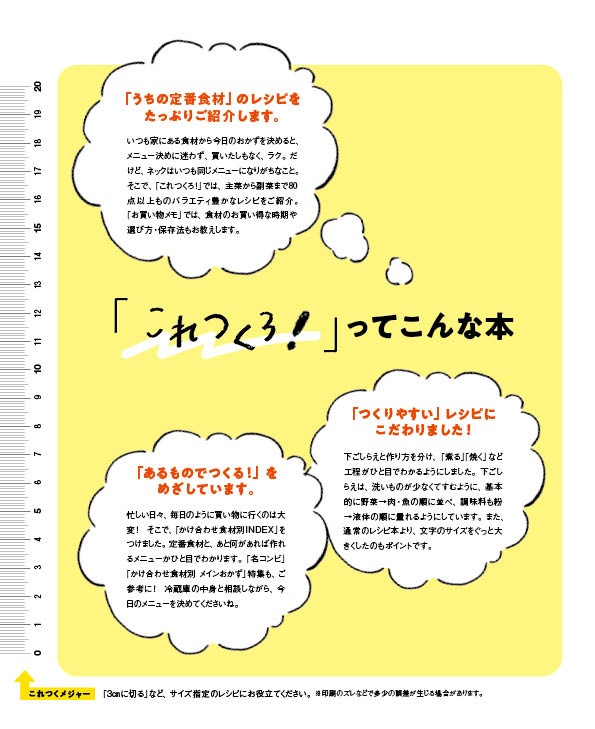 「うちの定番食材」のレシピを
たっぷりご紹介します。
いつも家にある食材から今日のおかずを決めると、
メニュー決めに迷わず、買いたしもなく、ラク。だ
けど、ネックはいつも同じメニューになりがちなこと。
そこで、「これつくろ!」では、主菜から副菜まで80
点以上ものバラエティ豊かなレシピをご紹介。
「お買い物メモ」では、食材のお買い得な時期や
選び方・保存法もお教えします。
「これつくろ!」ってこんな本
「つくりやすい」レシピに
こだわりました!
下ごしらえと作り方を分け、「煮る」「焼く」など
工程がひと目でわかるようにしました。下ごし
らえは、洗いものが少なくてすむように、基本
的に野菜→肉・魚の順に並べ、調味料も粉
→液体の順に量れるようにしています。また、
通常のレシピ本より、文字のサイズをぐっと大
きくしたのもポイントです。
「あるものでつくる!」を
めざしています。
忙しい日々、毎日のように買い物に行くのは大
変! そこで、「かけ合わせ食材別INDEX」を
つけました。定番食材と、あと何があれば作れ
るメニューかひと目でわかります。「名コンビ」
「かけ合わせ食材別 メインおかず」特集も、ご
参考に! 冷蔵庫の中身と相談しながら、今
日のメニューを決めてくださいね。
20
19
18
17
16
15
14
13
12
11
10
9
8
7
6
5
4
3
2
1
0
これつくメジャー 「3cmに切る」など、サイズ指定のレシピにお役立てください。 ※印刷のズレなどで多少の誤差が生じる場合があります。